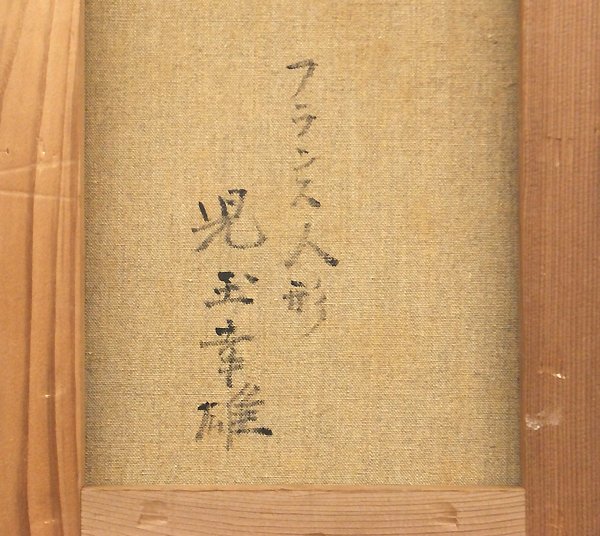 フランス人形
児玉幸雄